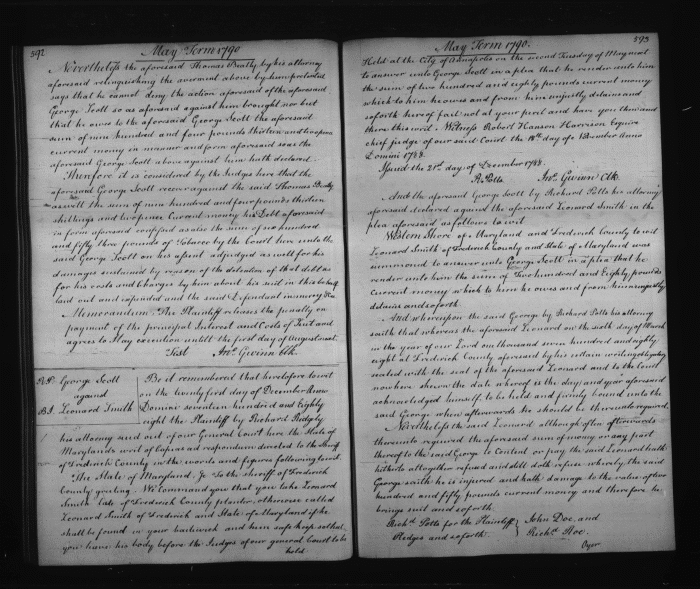 592
May Term 1790
Nevertheless the aforesaid Thomas Beatty by his attorney
aforesaid relinquishing the averment above by him pretended
says that he cannot deny the action aforesaid of the aforesaid
George Scott so as aforesaid against him brought nor but
that he owes to the aforesaid George Scott the aforesaid
sum of nine hundred and four pounds thirteen and two pence
current money in manner and form aforesaid as the
aforesaid George Scott above against him hath declared.
Therefore it is considered by the Judges here that the
aforesaid George Scott recover against the said Thomas Beatty
as well the sum of nine hundred and four pounds thirteen
shillings and two pence Current money his Debt aforesaid
in form aforesaid confessed as also the sum of six hundred
and fifty three pounds of Tobacco by the Court here unto the
said George Scott on his assent adjudged as well for his
damages sustained by reason of the detention of that debt as
for his costs and Charges by him about his suit in this behalf
laid out and expended and the said Defendant in mercy &c
Memorandum. The Plaintiff releases the penalty on
payment of the principal Interest and Costs of Suit and
agrees to stay execution untill the first day of August next.
Test Jno. Gwinn Clk.
R.P. George Scott
against
B.J. Leonard Smith
Be it remembered that heretofore to wit
on the twenty first day of December Anno
Domini seventeen hundred and Eighty
eight the Plaintiff by Richard Ridgely
his attorney sued out of our General Court here the State of
Marylands writ of Capias ad respondendum directed to the Sheriff
of Frederick County in the words and figures following to wit.
The State of Maryland, Jr. To the Sheriff of Frederick
County greeting. We Command you that you take Leonard
Smith late of Frederick County planter, otherwise called
Leonard Smith of Frederick and State of Maryland if he
shall be found in your bailiwick and him safe keep so that
you have his body before the Judges of our general Court to be
held
May Term 1790.
593
Held at the City of Annapolis on the second Tuesday of May next
to answer unto George Scott in a plea that he render unto him
the sum of two hundred and eighty pounds current money
which to him he owes and from him unjustly detains and
soforth hereof fail not at your peril and have you then and
there this writ. Witness Robert Hanson Harrison Esquire
chief judge of our said Court the 14th day of October Anno
Domini 1788.
Issued the 21st day of December 1788.
R. Potts Jno. Gwinn Clk.
And the aforesaid George Scott by Richard Potts his attorney
aforesaid declared against the aforesaid Leonard Smith in the
plea aforesaid as follows to wit
Western Shore of Maryland and Frederick County to wit
Leonard Smith of Frederick County and State of Maryland was
summoned to answer unto George Scott in a plea that he
render unto him the sum of Two hundred and Eighty pounds
Current money which to him he owes and from him unjustly
detains and soforth.
And whereupon the said George by Richard Potts his attorney
saith that whereas the aforesaid Leonard on the sixth day of March
in the year of our Lord one thousand seven hundred and eighty
eight at Frederick County aforesaid by his certain writing obligatory
sealed with the seal of the aforesaid Leonard and to the Court
now here shewn the date whereof is the day and year aforesaid
acknowledged himself to be held and firmly bound unto the
said George when afterwards he should be thereunto required.
Nevertheless the said Leonard although often afterwards
thereunto required the aforesaid sum of money or any part
thereof to the said George to Content or pay the said Leonard hath
hitherto altogether refused and still doth refuse whereby the said
George saith he is injured and hath damage to the value of two
hundred and fifty pounds current money and therefore he
brings suit and soforth.
Richd. Potts for the Plaintiff
Pledges and soforth
John Doe, and
Richd. Roe.
Oyer